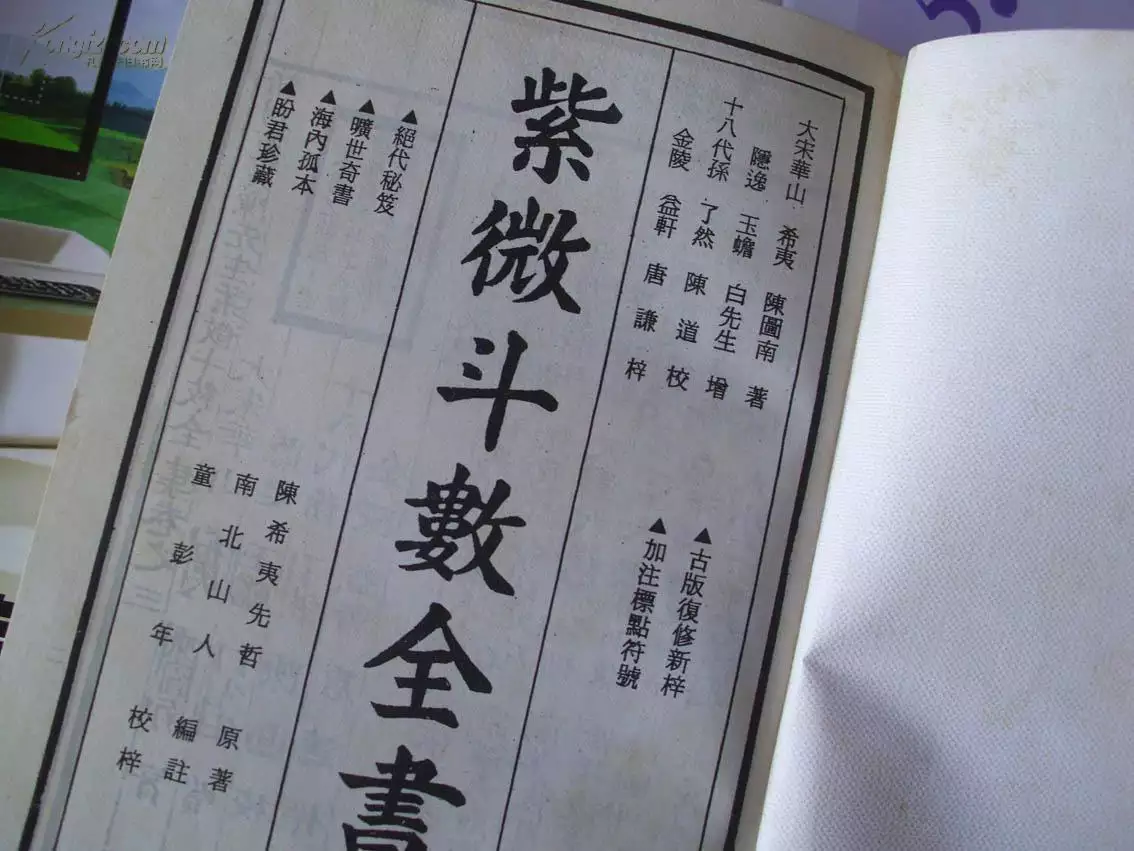 大宋華山 希夷 陳圖南 著
隱逸 玉蟾 白先生 增
十八代孫 了然 陳道 校
金陵 益軒 唐謙 梓
▲古版復修新梓
▲加注標點符號
紫微斗數全書
▲絕代秘笈
▲曠世奇書
▲海內孤本
▲盼君珍藏
陳希夷先哲 原著
南北山人 編註
童彭年 校梓
Kongfz.com